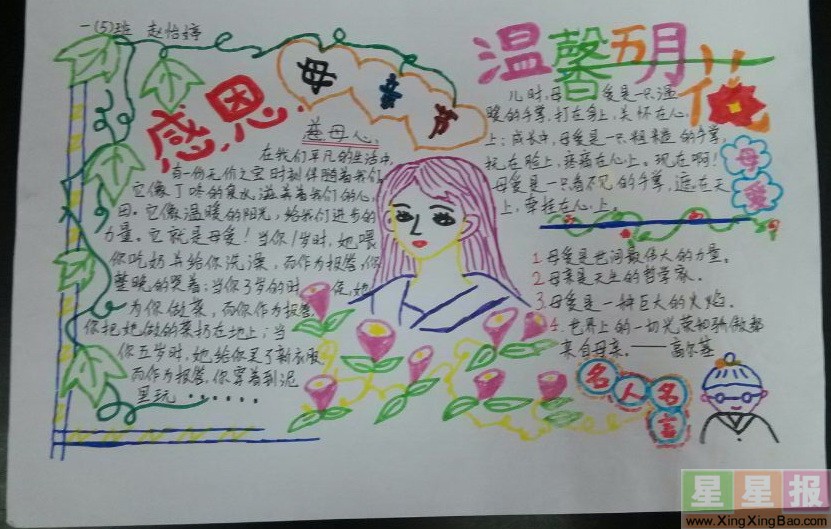 一(5)班 赵怡婷
感恩
母亲节
慈母人:
在我们平凡的生活中,
有一份无价之宝时刻伴随着我们
它像丁咚的泉水,滋养着我们的心
田。它像温暖的阳光,给我们进步的
力量。它就是母爱!当你1岁时,她喂
你吃奶并给你洗澡,而作为报答,你
整晚的哭着;当你3岁的时候,她
为你做菜,而你作为报答
你把她做的菜扔在地上;当
你五岁时,她给你买了新衣服
而作为报答,你穿着到泥
里玩······
温馨五月花
儿时,母爱是一只温
暖的手掌,打在身上,关怀在心
上;成长中,母爱是一只粗糙的手掌,
抚在脸上,疼痛在心上。现在啊!
母爱是一只看不见的手掌,遮在天
上,牵挂在心上。
母爱
1.母爱是世间最伟大的力量。
2.母亲是天生的哲学家。
3.母爱是一种巨大的火焰。
4.世界上的一切光荣和骄傲都
来自母亲。——高尔基
名人名言
星星报
www.XingXingBao.com